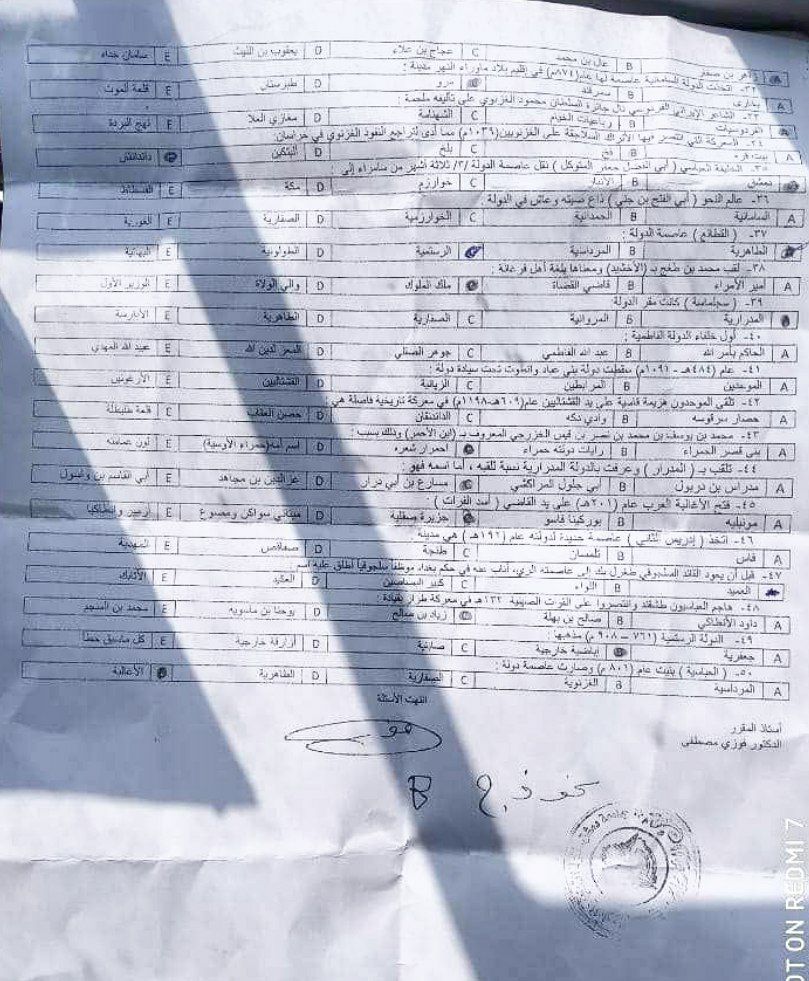 A طاهر بن صفر B عال بن محمد C عجاج بن علاء D يعقوب بن الليث E سامان خداه
٣٢- اتخذت الدولة السامانية عاصمة لها عام (٨٧٤م) في إقليم بلاد ماوراء النهر مدينة :
A بخارى B سمرقند مرو D طبرستان E قلعة الموت
٣٣- الشاعر الإيراني الفردوسي نال جائزة السلطان محمود الغزنوي على تأليفه ملحمة :
الفردوسيات B رباعيات الخيام C الشهنامة D مغازي العلا E نهج البردة
٣٤- المعركة التي انتصر فيها الأتراك السلاجقة على الغزنويين (١٠٣٩م) مما أدى لتراجع النفوذ الغزنوي في خراسان
A B فخ C بلخ D البتكين داندانقان
٣٥- الخليفة العباسي ( أبي الفضل جعفر المتوكل ) نقل عاصمة الدولة /٣/ ثلاثة أشهر من سامراء إلى :
دمشق B الأنبار C خوارزم D مكة E الفسطاط
٣٦- عالم النحو ( أبي الفتح بن جني ) ذاع صيته وعاش في الدولة :
A السامانية B الحمدانية C الخوارزمية D الصفارية E الغورية
٣٧- ( القطائع ) عاصمة الدولة :
الطاهرية B المرداسية الرستمية D الطولونية E البهائية
٣٨- لقب محمد بن طغج بـ (الأخشيد) ومعناها بلغة أهل فرغانة :
A أمير الأمراء B قاضي القضاة ملك الملوك D والي الولاة E الوزير الأول
٣٩- ( سجلماسة ) كانت مقر الدولة
المدرارية B المروانية C الصفارية D الطاهرية E الأدارسة
٤٠- أول خلفاء الدولة الفاطمية :
A الحاكم بأمر الله B عبد الله الفاطمي C جوهر الصقلي D المعز لدين الله E عبيد الله المهدي
٤١- عام (٤٨٤هـ - ١٠٩١م) سقطت دولة بني عباد وانطوت تحت سيادة دولة :
A الموحدين B المرابطين C الزيانية D القشتاليين E الأرغونيين
٤٢- تلقى الموحدون هزيمة قاسية على يد القشتاليين عام (٦٠٩هـ-١١٩٨م) في معركة تاريخية فاصلة هي :
A حصار سرقوسه B وادي لكه C الداندنقان D حصن العقاب قلعة طليطلة
٤٣- محمد بن يوسف بن محمد بن نصر بن قيس الخزرجي المعروف بـ (ابن الأحمر) وذلك بسبب :
A بنى قصر الحمراء B رايات دولته حمراء احمرار شعره D اسم أمه (حمراء الأوسية) E لون عمامته
٤٤- تلقب بـ ( المدرار ) وعرفت بالدولة المدرارية نسبة للقبه ، أما اسمه فهو :
A مدراس بن دربول B أبي جلول المراكشي مسارع بن أبي درار D عزالدين بن مجاهد E أبي القاسم بن واسول
٤٥- فتح الأغالبة العرب عام (٢٠١هـ) على يد القاضي ( أسد الفرات )
A مونبليه B بوركينا فاسو جزيرة صقلية D ميناتي سواكن ومصوع E أزمير وأنطاكيا
٤٦- اتخذ ( إدريس الثاني ) عاصمة جديدة لدولته عام (١٩٢هـ) هي مدينة
A فاس B تلمسان C طنجة D صفاقس E المهدية
٤٧- قبل أن يعود القائد السلجوقي طغرل بك إلى عاصمته الري، أناب عنه في حكم بغداد موظفاً سلجوقياً أطلق عليه اسم
العميد B اللواء C كبير السياسيين D العكيد E الأتابك
٤٨- هاجم العباسيون طشقند وانتصروا على القوات الصينية ١٣٣هـ في معركة طراز بقيادة :
A داود الأنطاكي B صالح بن بهلة زياد بن صالح D يوحنا بن ماسويه E محمد بن المنجم
٤٩- الدولة الرستمية (٧٦١ – ٩٠٨ م) مذهبها :
A جعفرية إباضية خارجية C صاعية D أزارقة خارجية E كل ماسبق خطأ
٥٠- ( العباسية ) بنيت عام (٨٠١ م) وصارت عاصمة دولة :
A المرداسية B الغزنوية C الصفارية D الطاهرية الأغالبة
انتهت الأسئلة
أستاذ المقرر
الدكتور فوزي مصطفى
B
OT ON REDMI 7